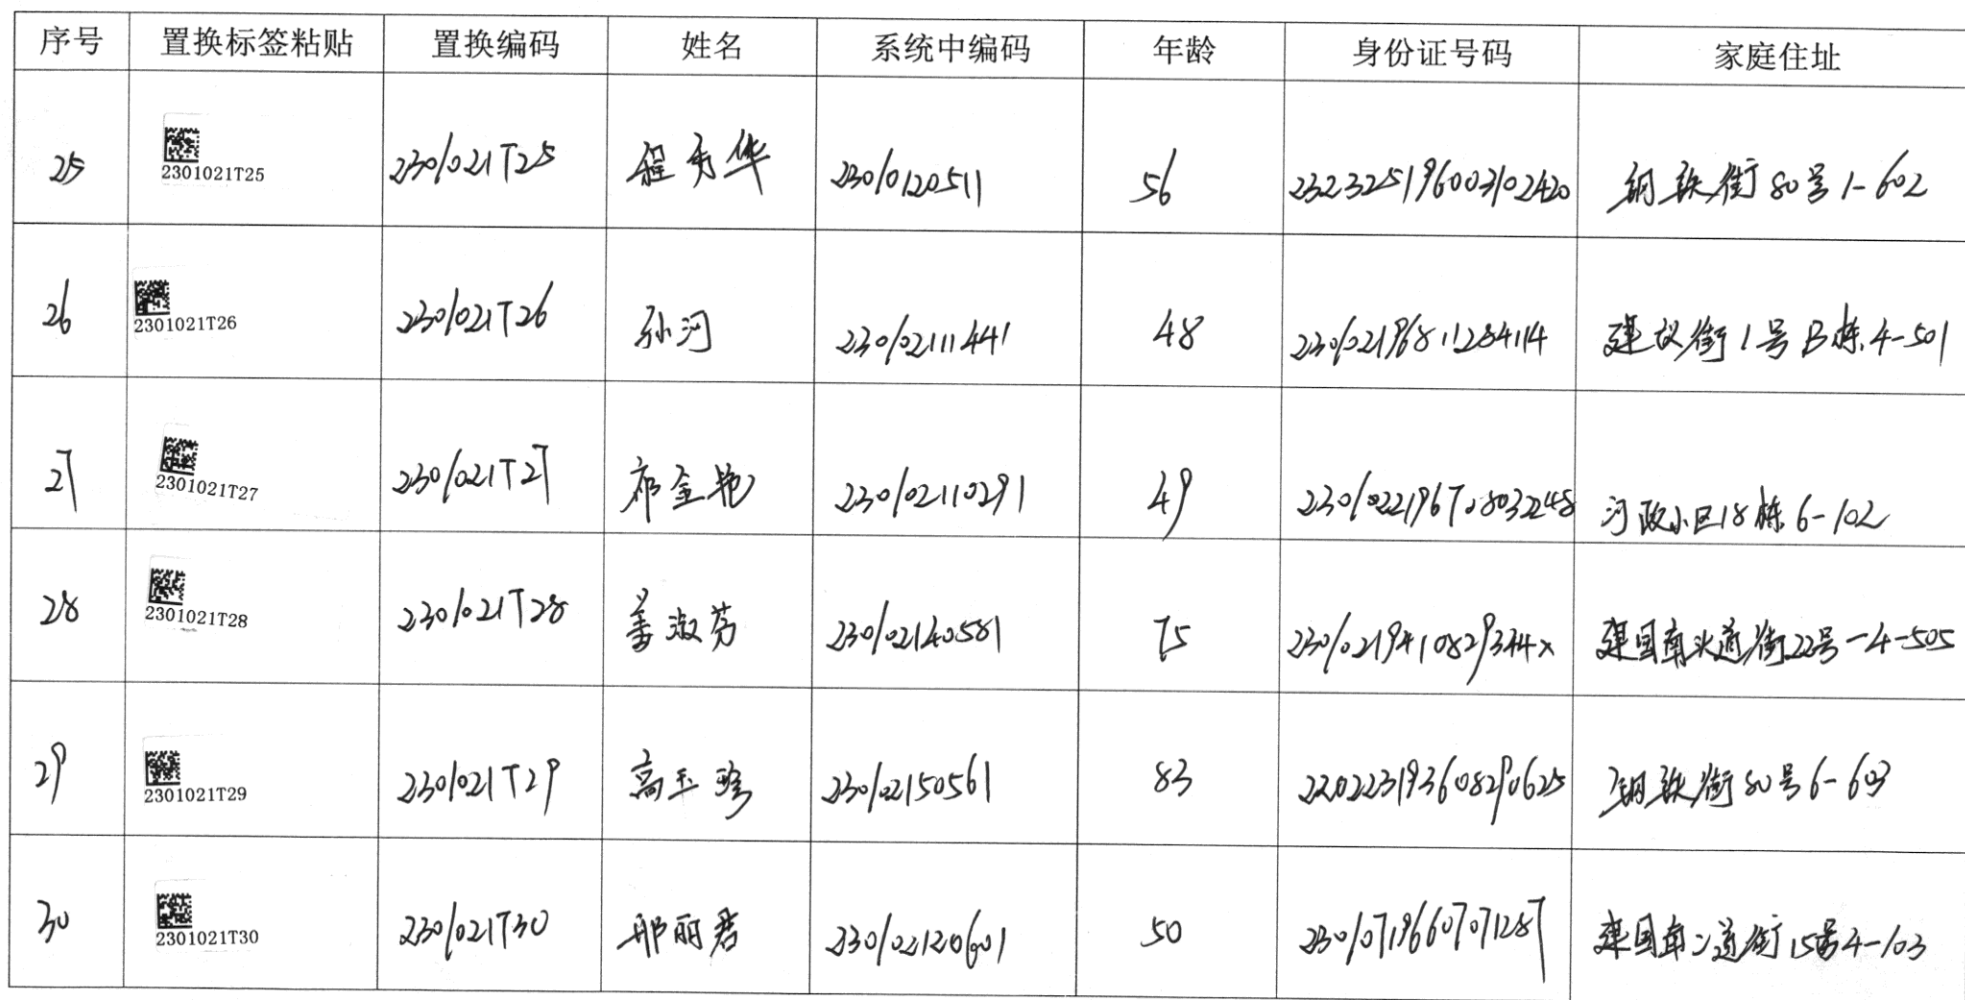 序号 置换标签粘贴 置换编码 姓名 系统中编码 年龄 身份证号码 家庭住址
25 2301021T25 2301021T25 程秀华 23010120511 56 232325196003102420 钢铁街80号1-602
26 2301021T26 2301021T26 孙河 230102111441 48 230102196811284114 建议街1号B栋4-501
27 2301021T27 2301021T27 祁金艳 230102110291 49 230102196708032248 河政小区18栋6-102
28 2301021T28 2301021T28 姜淑芬 230102140581 75 23010219410829344x 建国南头道街22号-4-505
29 2301021T29 2301021T29 高玉珍 230102150561 83 220223193608290625 钢铁街80号6-603
30 2301021T30 2301021T30 邢丽君 230102120601 50 230107196607071287 建国南二道街15号4-103